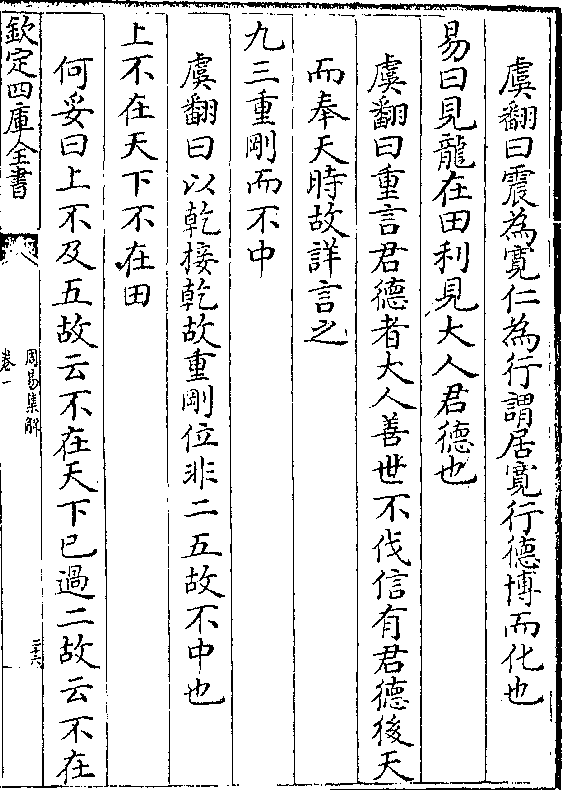 虞翻曰震為寛仁為行謂居寛行德博而化也
易曰見龍在田利見大人君德也
虞翻曰重言君德者大人善世不伐信有君德後天
而奉天時故詳言之
九三重剛而不中
虞翻曰以乾接乾故重剛位非二五故不中也
上不在天下不在田
何妥曰上不及五故云不在天下已過二故云不在
欽定四庫全書
周易集解
卷一
三十六